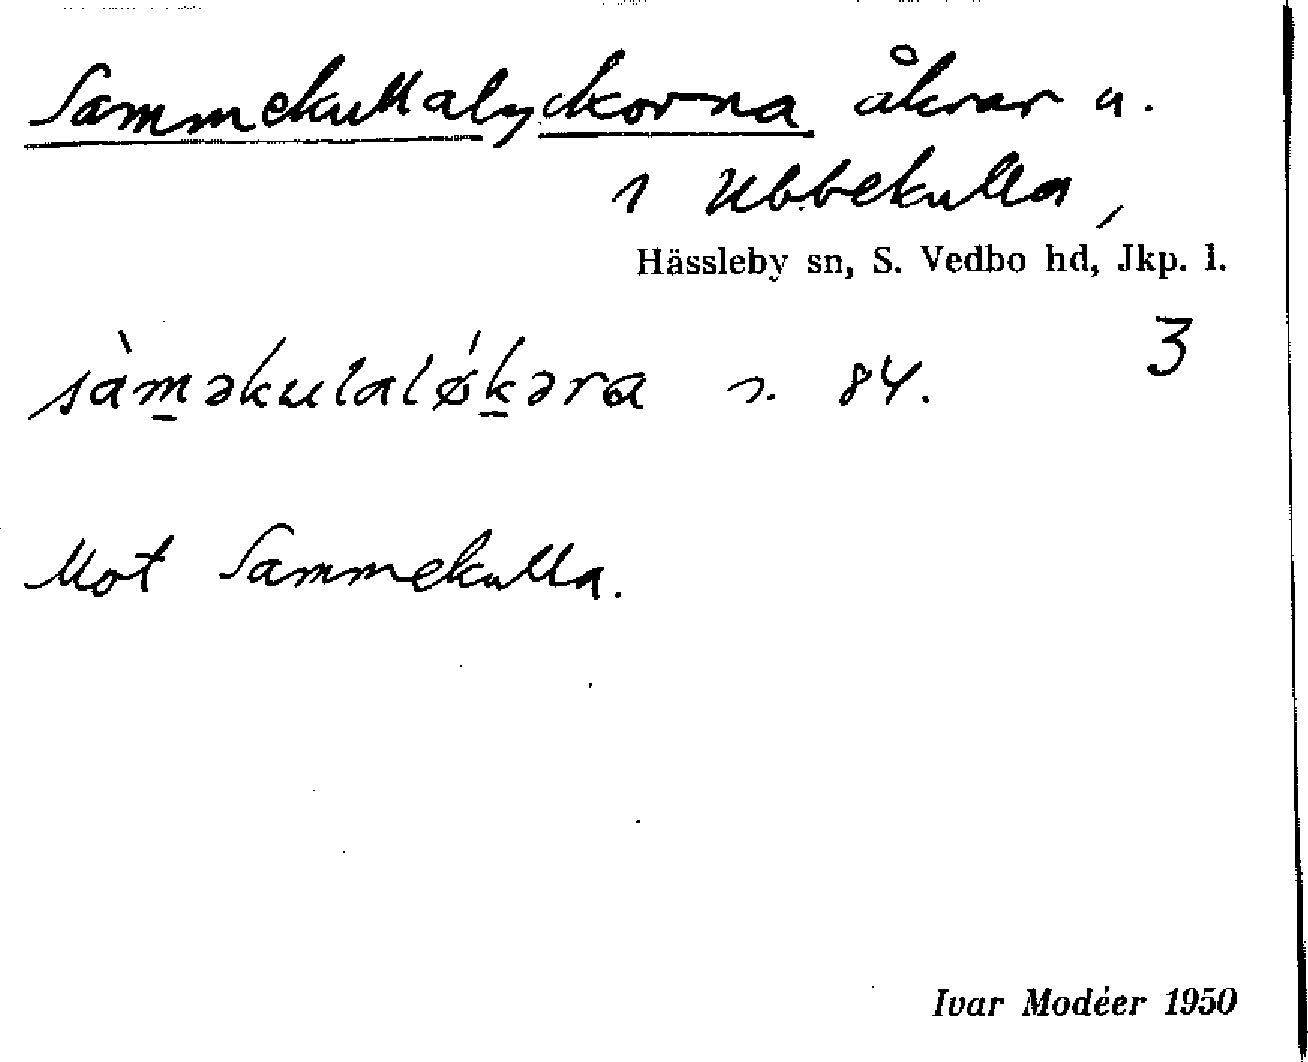 Sammekullalyckorna åkrar u.
1 Ubbekulla,
Hässleby sn, S. Vedbo hd, Jkp. l.
sàm̱əkulaló̸ḵəra s. 84.
3
Mot Sammekulla.
Ivar Modéer 1950